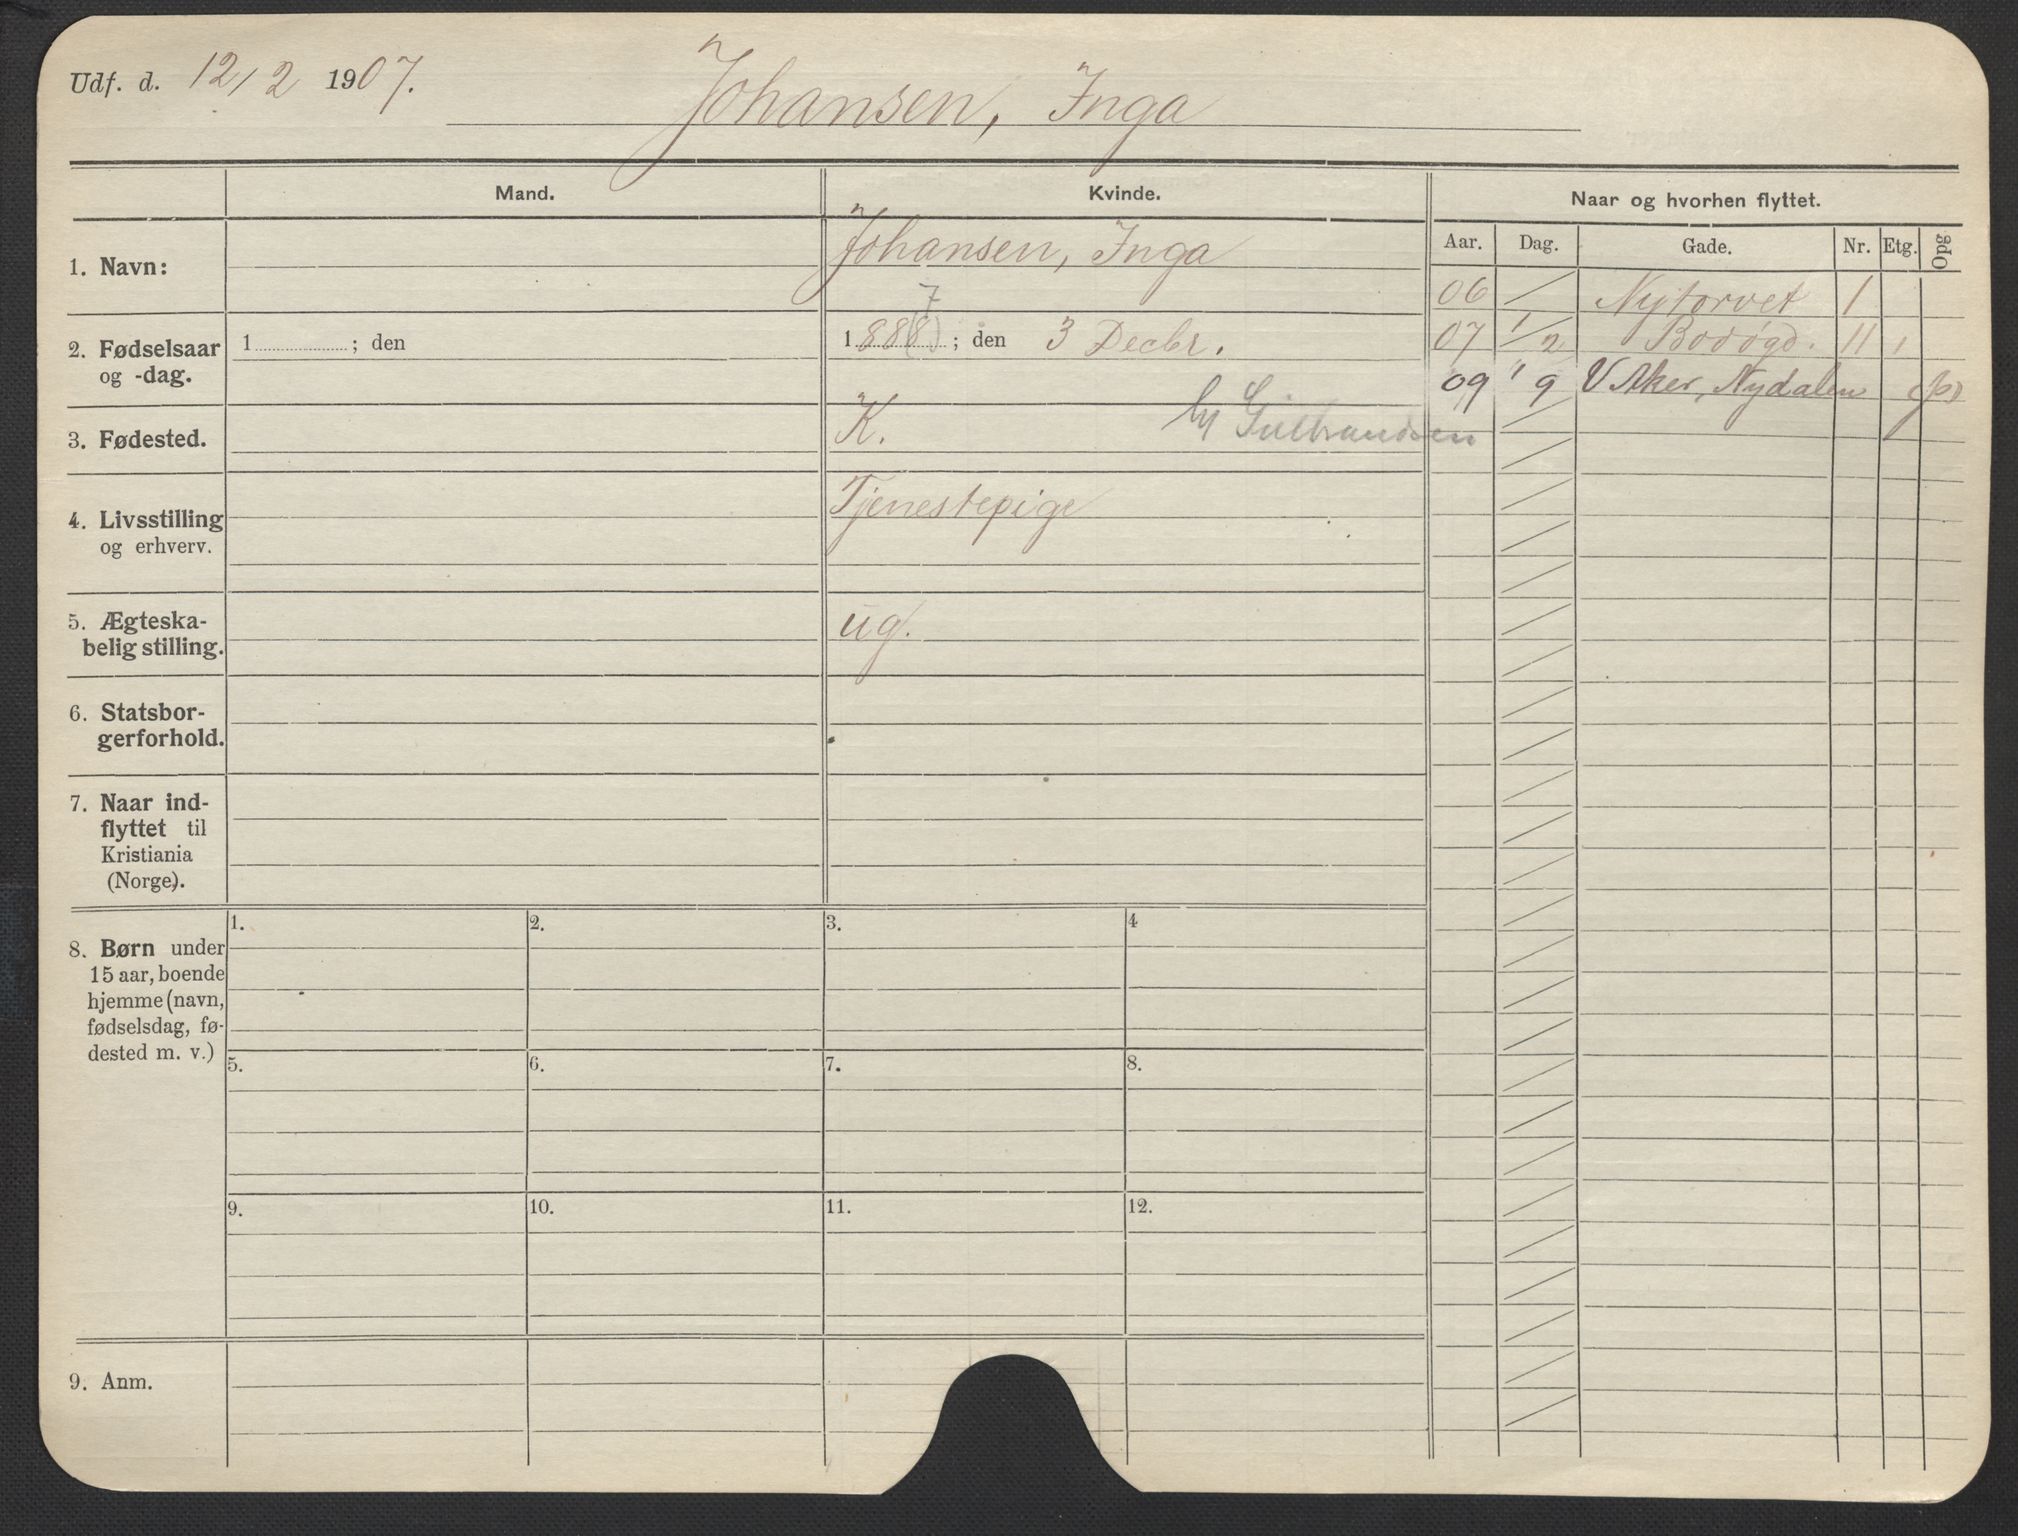 Udf. d. 12/2 1907.
Johansen, Inga
Mand.
Kvinde.
Naar og hvorhen flyttet.
Aar. Dag. Gade. Nr. Etg. Opg
1. Navn:
Johansen, Inga
06 / Nytorvet 1
07 1/2 Bodøgd. 11 1
09 1/9 V Aker, Nydalen
2. Fødselsaar
og -dag.
1 ; den
7
1888(8) ; den 3 Decbr.
3. Fødested.
K.
Gulbrandsen
4. Livsstilling
og erhverv.
Tjenestepige
5. Ægteska-
belig stilling.
ug.
6. Statsbor-
gerforhold.
7. Naar ind-
flyttet til
Kristiania
(Norge).
8. Børn under
15 aar, boende
hjemme (navn,
fødselsdag, fø-
dested m. v.)
1. 2. 3. 4
5. 6. 7. 8.
9. 10. 11. 12.
9. Anm.